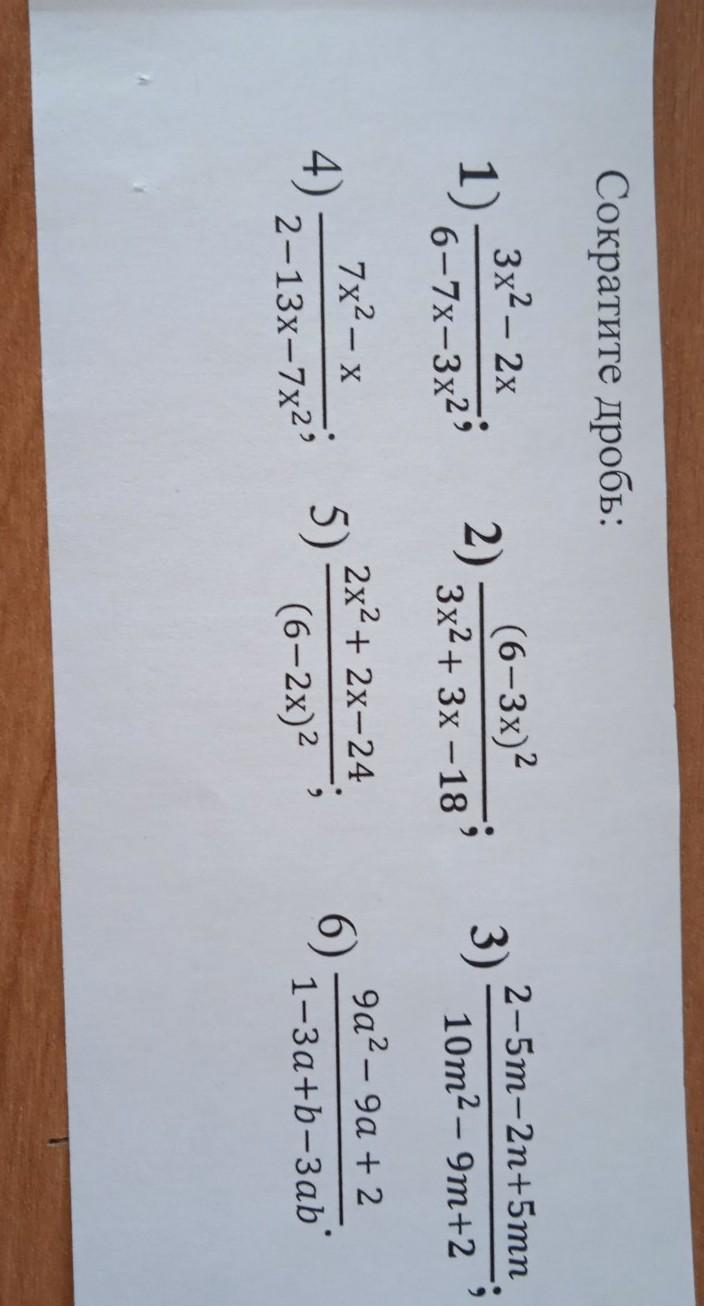 Сократите дробь:
1) \frac{3x² − 2x}{6−7x−3x²}; 2) \frac{(6−3x)²}{3x² + 3x −18}; 3) \frac{2−5m−2n+5mn}{10m² − 9m+2};
4) \frac{7x² − x}{2−13x−7x²}; 5) \frac{2x² + 2x−24}{(6−2x)²}; 6) \frac{9a² − 9a + 2}{1−3a+b−3ab}.